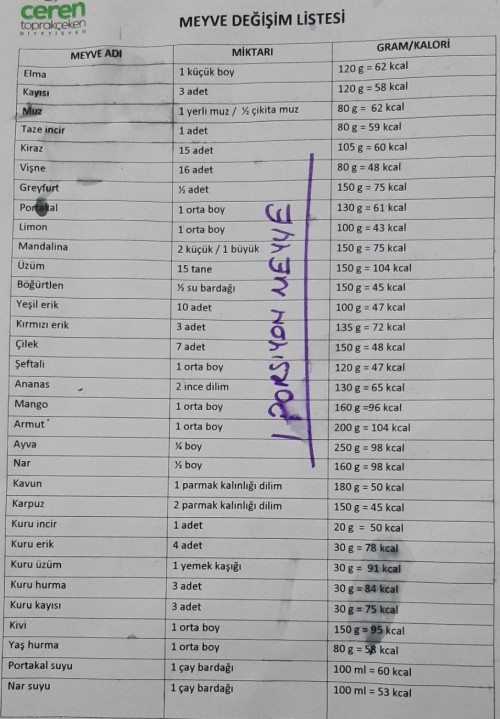 ceren
toprakçeken
DİYETİSYEN
MEYVE DEĞİŞİM LİSTESİ
MEYVE ADI MİKTARI GRAM/KALORİ
Elma 1 küçük boy 120 g = 62 kcal
Kayısı 3 adet 120 g = 58 kcal
Muz 1 yerli muz / ½ çikita muz 80 g = 62 kcal
Taze incir 1 adet 80 g = 59 kcal
Kiraz 15 adet 105 g = 60 kcal
Vişne 16 adet 80 g = 48 kcal
Greyfurt ½ adet 150 g = 75 kcal
Portakal 1 orta boy 130 g = 61 kcal
Limon 1 orta boy 100 g = 43 kcal
Mandalina 2 küçük / 1 büyük 150 g = 75 kcal
Üzüm 15 tane 150 g = 104 kcal
Böğürtlen ½ su bardağı 150 g = 45 kcal
Yeşil erik 10 adet 100 g = 47 kcal
Kırmızı erik 3 adet 135 g = 72 kcal
Çilek 7 adet 150 g = 48 kcal
Şeftali 1 orta boy 120 g = 47 kcal
Ananas 2 ince dilim 130 g = 65 kcal
Mango 1 orta boy 160 g =96 kcal
Armut 1 orta boy 200 g = 104 kcal
Ayva ¼ boy 250 g = 98 kcal
Nar ½ boy 160 g = 98 kcal
Kavun 1 parmak kalınlığı dilim 180 g = 50 kcal
Karpuz 2 parmak kalınlığı dilim 150 g = 45 kcal
Kuru incir 1 adet 20 g = 50 kcal
Kuru erik 4 adet 30 g = 78 kcal
Kuru üzüm 1 yemek kaşığı 30 g = 91 kcal
Kuru hurma 3 adet 30 g = 84 kcal
Kuru kayısı 3 adet 30 g = 75 kcal
Kivi 1 orta boy 150 g = 95 kcal
Yaş hurma 1 orta boy 80 g = 58 kcal
Portakal suyu 1 çay bardağı 100 ml = 60 kcal
Nar suyu 1 çay bardağı 100 ml = 53 kcal
1 PORSİYON MEYVE